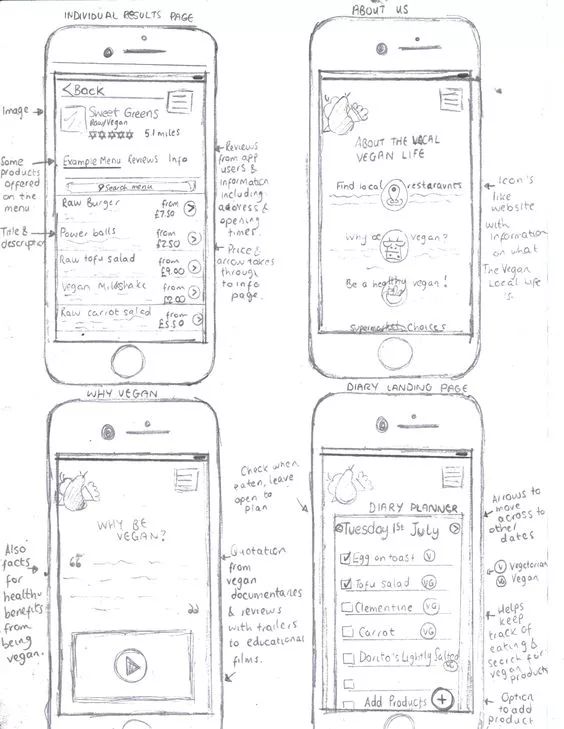 INDIVIDUAL RESULTS PAGE
Image
Some
products
offered
on the
menu
Title &
description
<Back
Sweet Greens
Raw/Vegan
5.1 miles
Example Menu Reviews Info
Search menu
Raw Burger from £7.50
Power balls from £2.50
Raw tofu salad from £9.00
Vegan Milkshake from £2.00
Raw carrot salad from £5.50
Reviews
from app
users &
information
including
address &
opening
times.
Price &
arrow takes
through
to info
page.
ABOUT US
ABOUT THE LOCAL
VEGAN LIFE
Find local restaraunts
Why be vegan?
Be a healthy vegan!
Supermarket Choices
Icon's
like
website
with
information
on what
The Vegan
Local Life
is.
WHY VEGAN
Also
facts
for
healthy
benefits
from
being
vegan.
WHY BE
VEGAN?
“
”
Quotation
from
vegan
documentaries
& reviews
with trailers
to educational
films.
DIARY LANDING PAGE
Check when
eaten, leave
open to
plan
DIARY PLANNER
< Tuesday 1st July >
Egg on toast V
Tofu salad VG
Clementine VG
Carrot VG
Dorito's Lightly Salted VG
Add Products +
Arrows to
move
across to
other
dates
V Vegetarian
VG Vegan
Helps
keep
track of
eating &
search for
vegan products
Option
to add
product